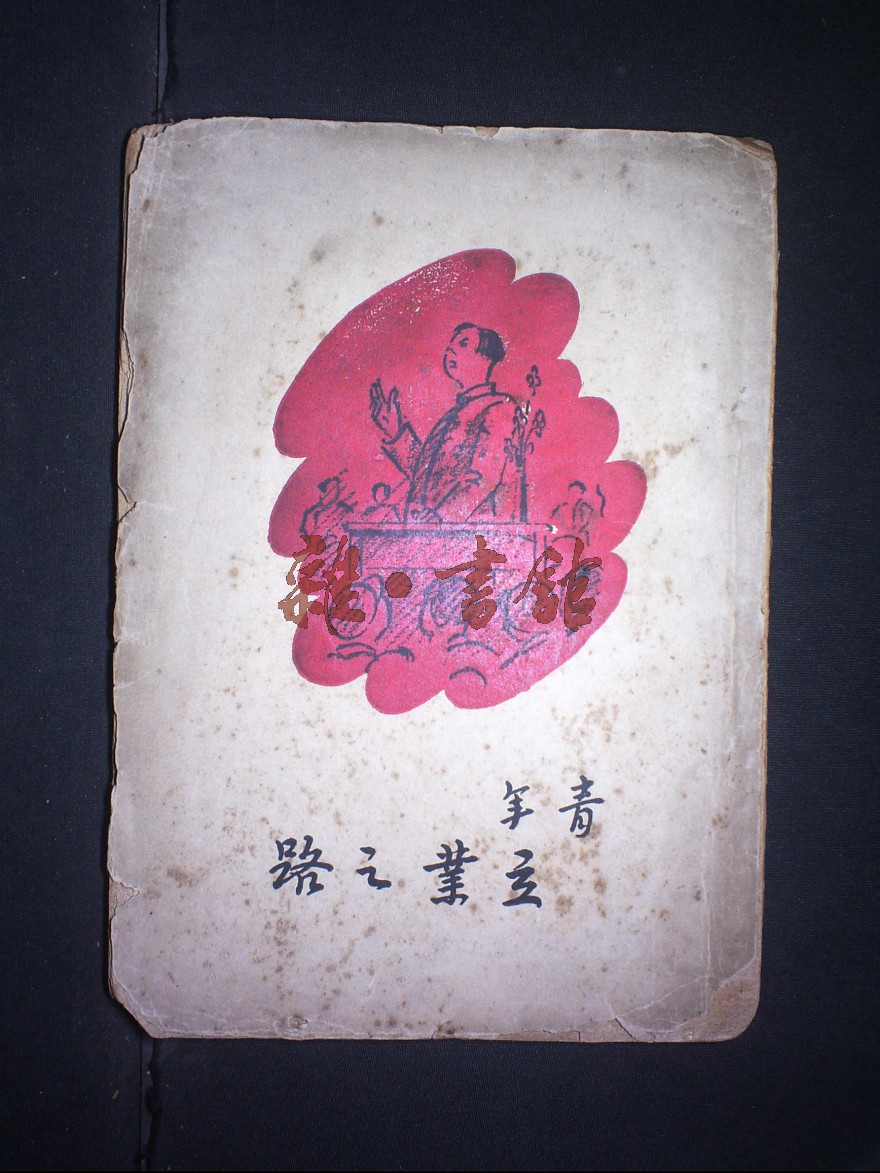 雜·書館
青年
立業之路